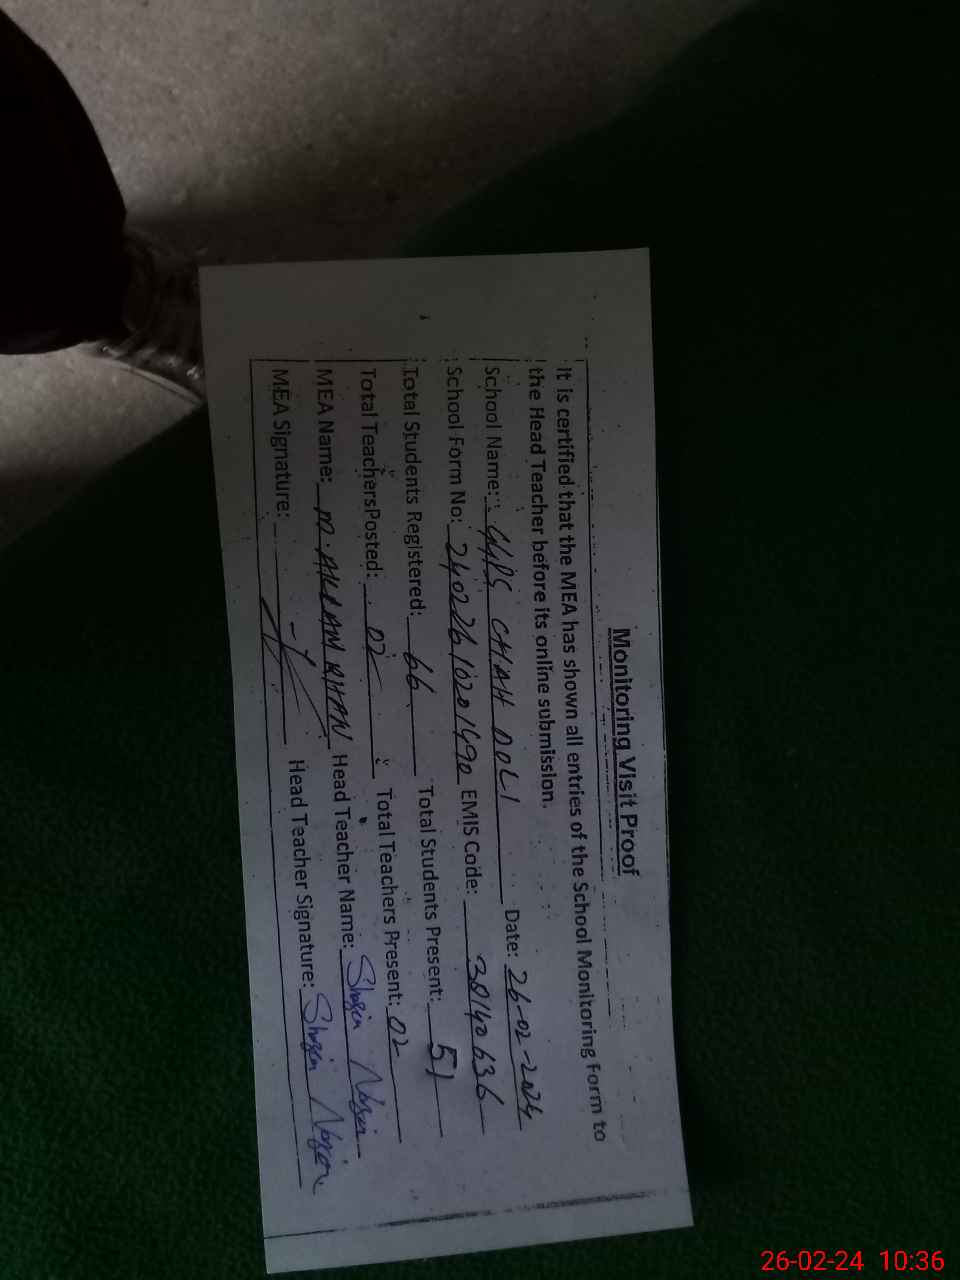 Monitoring Visit Proof
It is certified that the MEA has shown all entries of the School Monitoring Form to
the Head Teacher before its online submission.
School Name: GGPS CHAH DOLI Date: 26-02-2024
School Form No: 24022610201490 EMIS Code: 38140636
Total Students Registered: 66 Total Students Present: 51
Total TeachersPosted: 02 Total Teachers Present: 02
MEA Name: M. AKRAM KHAN Head Teacher Name:
MEA Signature: Head Teacher Signature:
26-02-24 10:36